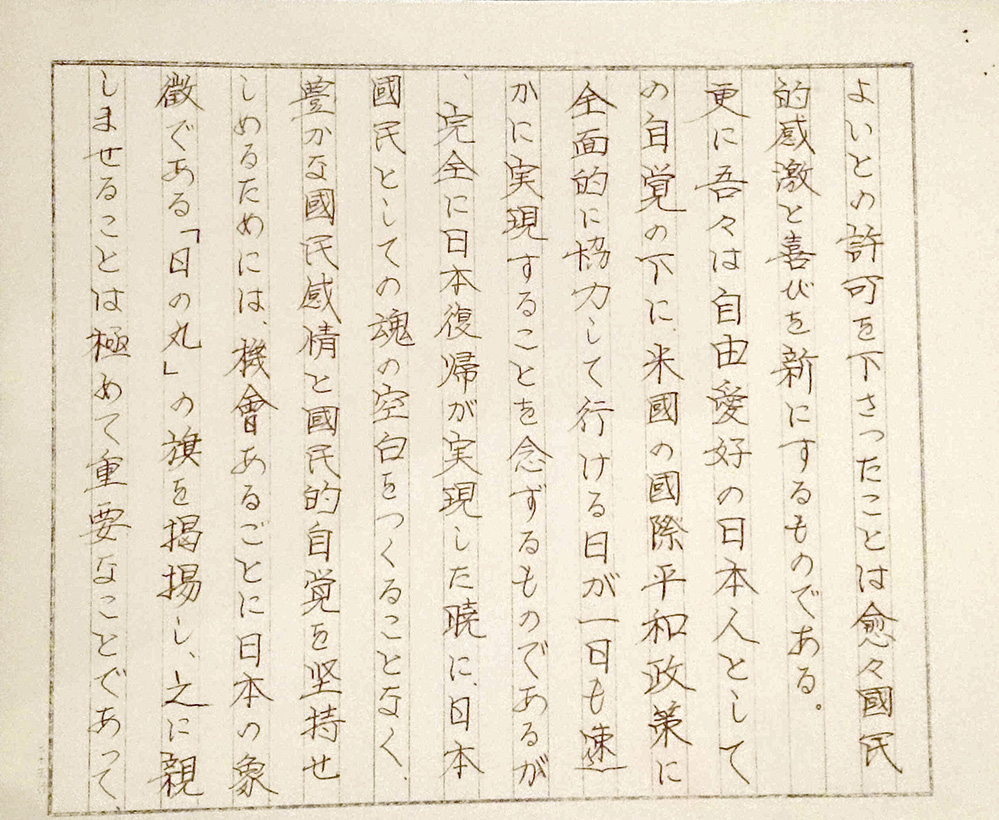 よいとの許可を下さったことは愈々國民
的感激と喜びを新にするものである。
更に吾々は自由愛好の日本人として
の自覚の下に、米國の國際平和政策に
全面的に協力して行ける日が一日も速
かに実現することを念ずるものであるが
、完全に日本復帰が実現した暁に、日本
國民としての魂の空白をつくることなく、
豊かな國民感情と國民的自覚を坚持せ
しめるためには、機會あるごとに日本の象
徴である「日の丸」の旗を掲揚し、之に親
しませることは極めて重要なことであって、